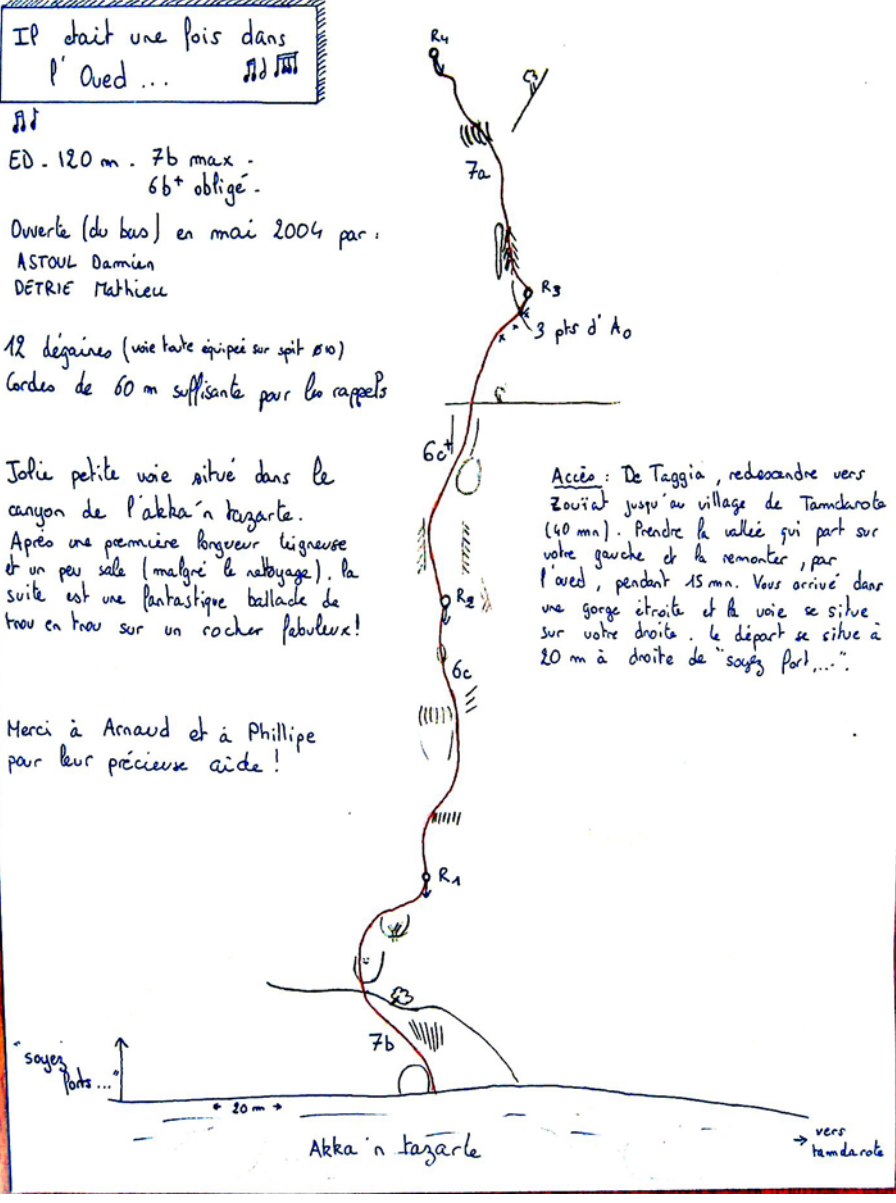 Il était une fois dans
l'Oued ...
ED - 120 m - 7b max -
6b+ obligé -
Ouverte (du bas) en mai 2004 par :
ASTOUL Damien
DETRIE Mathieu
12 dégaines (voie toute équipeé sur spit ø10)
Cordes de 60 m suffisante pour les rappels
Jolie petite voie situé dans le
canyon de l'akka'n tazarte.
Après une première longueur teigneuse
et un peu sale (malgré le nettoyage). la
suite est une fantastique ballade de
trou en trou sur un rocher fabuleux!
Merci à Arnaud et à Phillipe
pour leur précieuse aide !
R4
7a
R3
3 pts d'A0
6c+
R2
6c
R1
7b
Accès : De Taggia, redescendre vers
Zouïat jusqu'au village de Tamdarote
(40 mn). Prendre la vallée qui part sur
votre gauche et la remonter, par
l'oued, pendant 15 mn. Vous arrivé dans
une gorge étroite et la voie se situe
sur votre droite. le départ se situe à
20 m à droite de "soyez fort,...".
"soyez
forts..."
20 m
Akka'n tazarte
vers
tamdarote